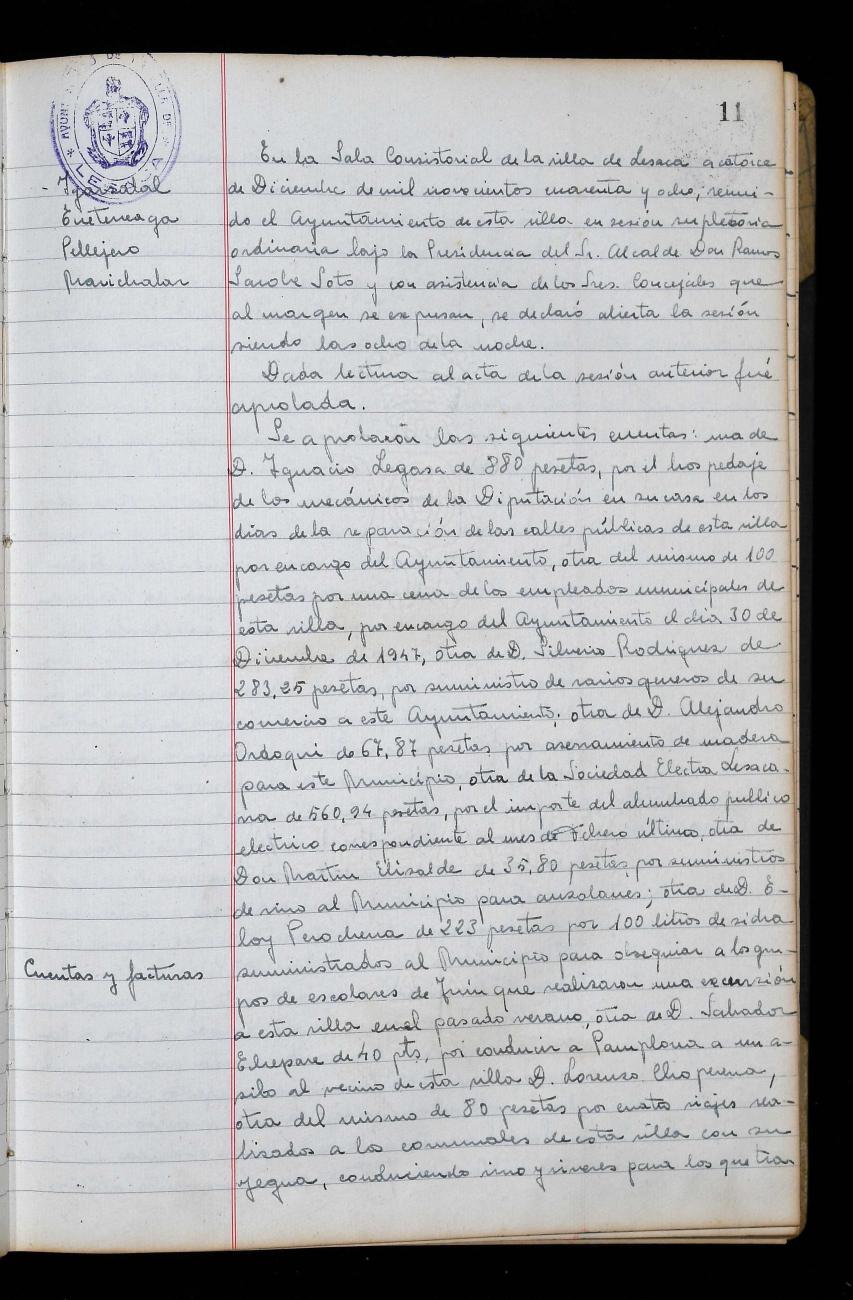 11
AYUNTAMIENTO DE LA VILLA DE
LESACA
- Igarzabal
Errteneaga
Pellejero
Marichalar
En la Sala Consistorial de la villa de Lesaca a catorce
de Diciembre de mil novecientos cuarenta y ocho, reuni-
do el Ayuntamiento de esta villa en sesión supletoria
ordinaria bajo la Presidencia del Sr. Alcalde Don Ramos
Sarobe Soto y con asistencia de los Sres. Concejales que
al margen se expresan, se declaró abierta la sesión
siendo las ocho de la noche.
Dada lectura al acta de la sesión anterior fué
aprobada.
Se aprobaron las siguientes cuentas: una de
D. Ignacio Legasa de 880 pesetas, por el hospedaje
de los mecánicos de la Diputación en su casa en los
dias de la reparación de las calles públicas de esta villa
por encargo del Ayuntamiento, otra del mismo de 100
pesetas por una cena de los empleados municipales de
esta villa, por encargo del Ayuntamiento el dia 30 de
Diciembre de 1947, otra de D. Silverio Rodriguez de
283,25 pesetas, por suministro de varios generos de su
comercio a este Ayuntamiento; otra de D. Alejandro
Ordoqui de 67,87 pesetas por aserramiento de madera
para este Municipio, otra de la Sociedad Electra Lesaca-
na de 560,94 pesetas, por el importe del alumbrado publico
electrico correspondiente al mes de último, otra de
Don Martin Elizalde de 35,80 pesetas por suministros
de vino al Municipio para auzolanes; otra de D. E-
loy Perochena de 223 pesetas por 100 litros de sidra
Cuentas y facturas
suministrados al Municipio para obsequiar a los gru-
pos de escolares de Irún que realizaron una excursión
a esta villa en el pasado verano, otra de D. Salvador
Echepare de 40 pts, por conducir a Pamplona a un a-
silo al vecino de esta villa D. Lorenzo Choperena,
otra del mismo de 80 pesetas por cuatro viajes rea-
lizados a los comunales de esta villa con su
yegua, conduciendo vino y viveres para los que tra-